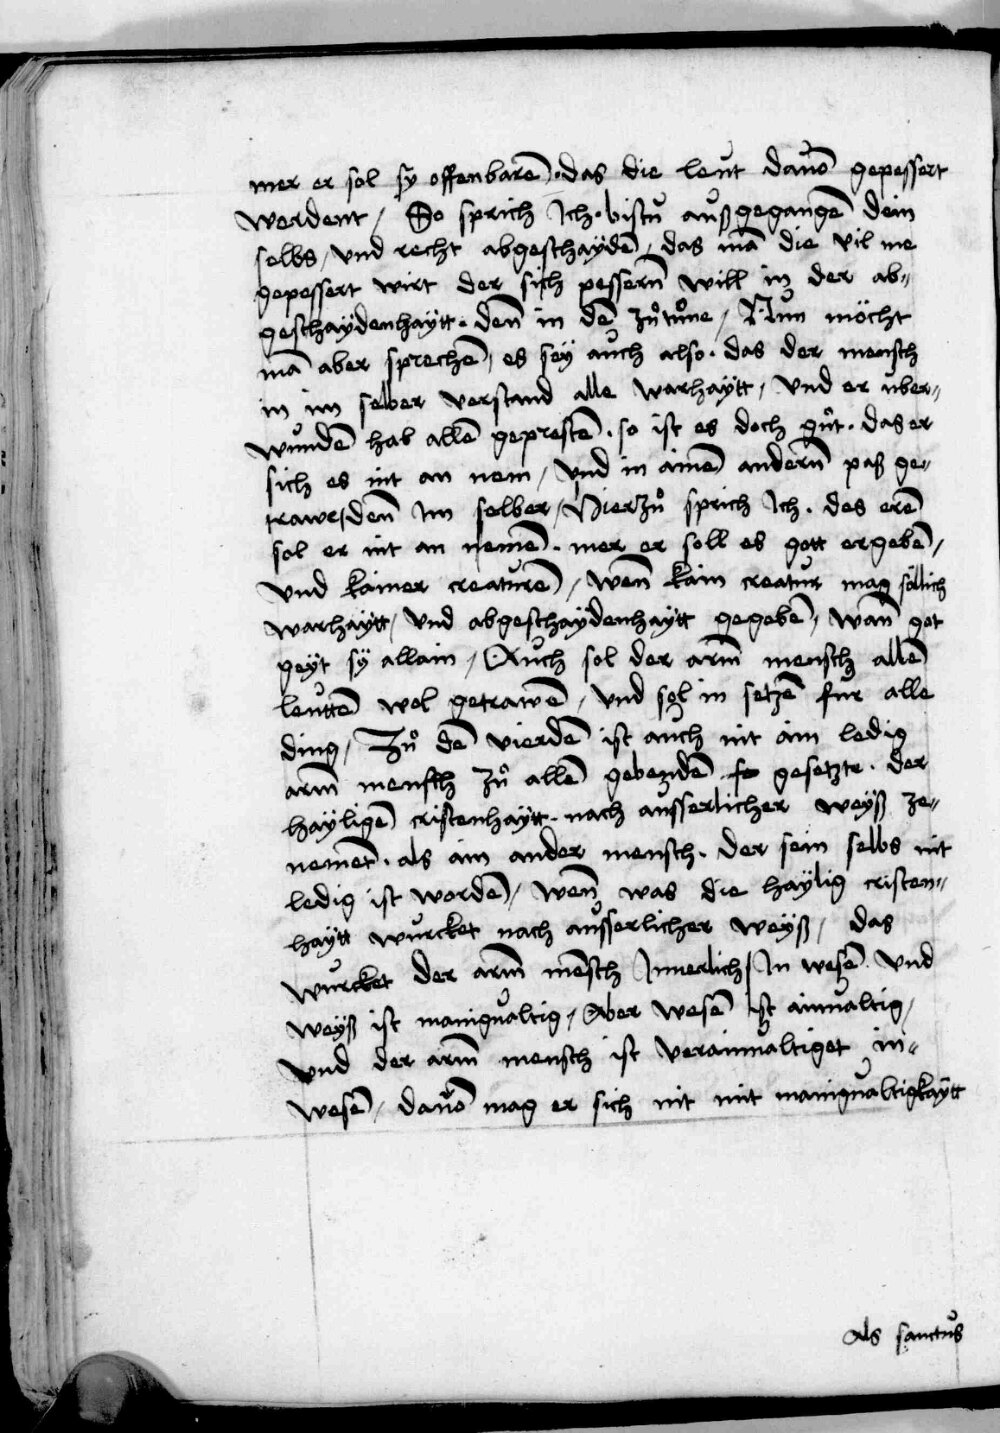 mer er sol sy offenbarē · das die leut dauō gepessert
werdent / So sprich Ich · bistu außgegangē dein
selbs / vnd recht abgeschaydē / das mā die vil me
gepessert wirt der sich pessern̄ will in der ab„
geschaÿdenhaÿtt · den̄ in dē zůtůne / Nun möcht
mā aber sprechē / es seÿ auch also · das der mensch
in im selber verstand alle warhaÿtt / vnd er uber„
wundē hab allē geprestē · so ist es doch gůt · das er
sich es nit an nem / vnd in ainē andern̄ paß ge„
trawe / den̄ Im selber / Hierzů sprich Ich · des erē
sol er nit an nemē · mer er soll es gott ergebē /
vnd kainer creaturē / wen̄ kain creatur mag söllich
warhaÿtt / vnd abgeschaÿdenhaÿtt gegebē / wan̄ got
geÿt sÿ allain / Auch sol der arm̄ mensch allē
leuttē wol getrawē / vnd sol in setzē fur alle
ding / Zů dē vierdē ist auch nit ain ledig
arm̄ mensch zů allē gebendē gesetztr · der
haÿligē cristenhaÿtt · nach ausserlicher weÿß ze„
nemēt · als ain ander mensch · der sein selbs nit
ledig ist wordē / wen̄ was die haÿlig cristen„
haÿtt wurcket nach ausserlicher weÿß / das
wurcket der arm̄ mēsch Innerlich / In wesē · vnd
weÿß ist manigualtig / Aber wesē ist ainualtig /
vnd der arm̄ mensch ist verainualtiget in„
wesē / dauō mag er sich nit mit manigualtigkaÿtt
Als sanctus